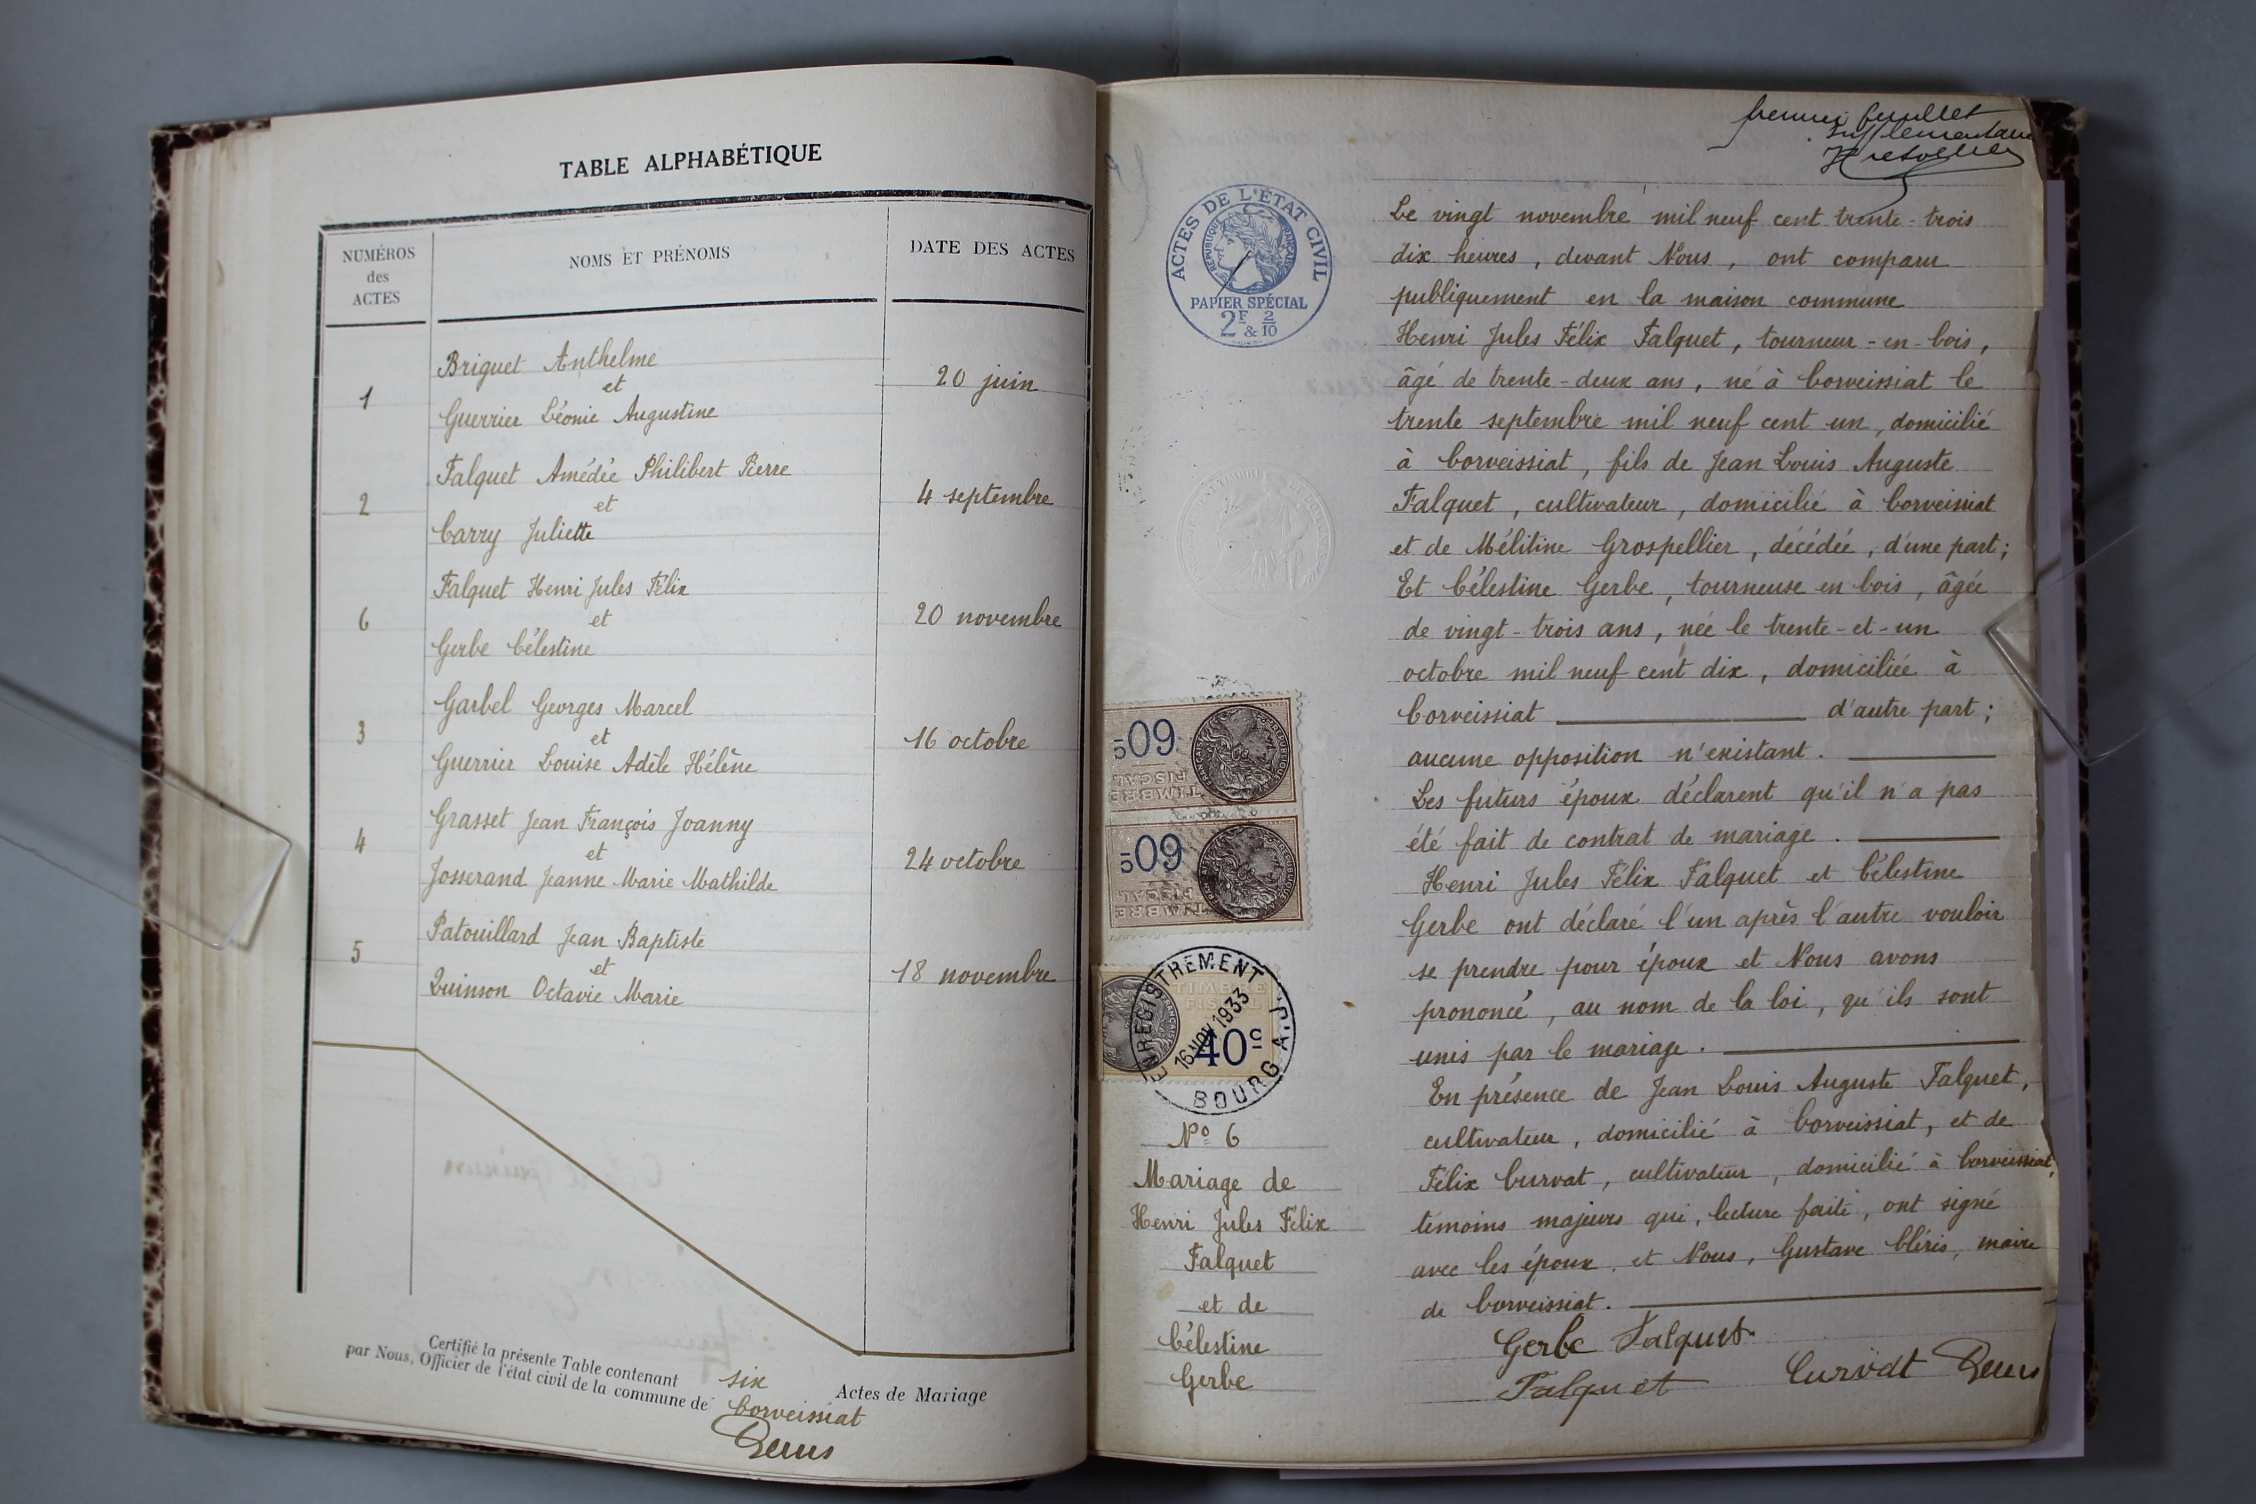 TABLE ALPHABÉTIQUE
NUMÉROS
des
ACTES
NOMS ET PRÉNOMS
DATE DES ACTES
1
Briguet Anthelme
et
Guerrier Léonie Augustine
20 juin
2
Falquet Amédée Philibert Pierre
et
Carry Juliette
4 septembre
6
Falquet Henri Jules Félix
et
Gerbe Célestine
20 novembre
3
Garbel Georges Marcel
et
Guerrier Louise Adèle Hélène
16 octobre
4
Grasset Jean François Joanny
et
Josserand Jeanne Marie Mathilde
24 octobre
5
Patouillard Jean Baptiste
et
Quinson Octavie Marie
18 novembre
Certifié la présente Table contenant six Actes de Mariage
par Nous, Officier de l'état civil de la commune de Corveissiat
premier feuillet
supplémentaire
ACTES DE L'ÉTAT CIVIL
RÉPUBLIQUE FRANÇAISE
PAPIER SPÉCIAL
2F & 2/10
Le vingt novembre mil neuf cent trente-trois
dix heures, devant Nous, ont comparu
publiquement en la maison commune
Henri Jules Félix Falquet, tourneur-en-bois,
âgé de trente-deux ans, né à Corveissiat le
trente septembre mil neuf cent un, domicilié
à Corveissiat, fils de Jean Louis Auguste
Falquet, cultivateur, domicilié à Corveissiat
et de Mélitine Grospellier, décédée, d'une part;
Et Célestine Gerbe, tourneuse en bois, âgée
de vingt-trois ans, née le trente-et-un
octobre mil neuf cent dix, domiciliée à
Corveissiat d'autre part;
aucune opposition n'existant.
Les futurs époux déclarent qu'il n'a pas
été fait de contrat de mariage.
Henri Jules Félix Falquet et Célestine
Gerbe ont déclaré l'un après l'autre vouloir
se prendre pour époux et Nous avons
prononcé, au nom de la loi, qu'ils sont
unis par le mariage.
En présence de Jean Louis Auguste Falquet,
cultivateur, domicilié à Corveissiat, et de
Félix Curvat, cultivateur, domicilié à Corveissiat,
témoins majeurs qui, lecture faite, ont signé
avec les époux, et Nous, Gustave Cléris, maire
de Corveissiat.
Gerbe Falquet
Falquet Curvat
TIMBRE
FISCAL
TIMBRE
FISCAL
TIMBRE
FISCAL
40c
ENREGISTREMENT
16 NOV 1933
BOURG A.J.
No 6
Mariage de
Henri Jules Félix
Falquet
et de
Célestine
Gerbe